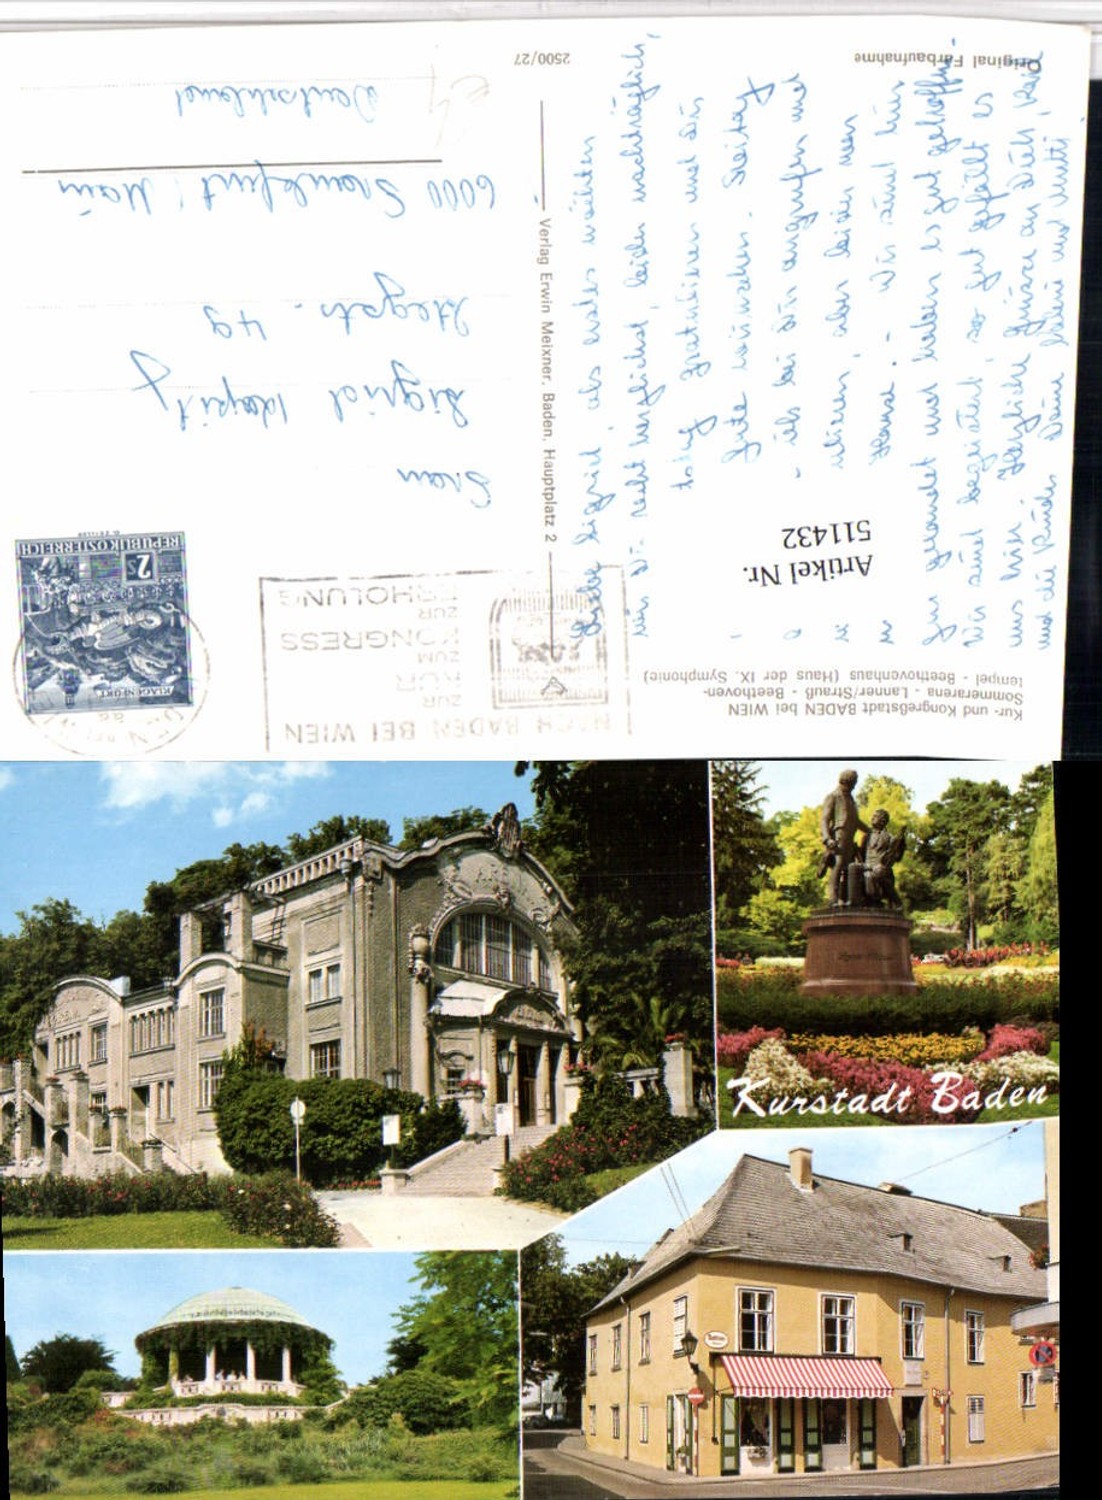 Original Farbaufnahme
2500/27
Kur- und Kongreßstadt BADEN bei WIEN
Sommerarena - Lanner/Strauß - Beethoven-
tempel - Beethovenhaus (Haus der IX. Symphonie)
Verlag Erwin Meixner, Baden, Hauptplatz 2
Artikel Nr.
511432
NACH BADEN BEI WIEN
ZUR
KUR
ZUM
KONGRESS
ZUR
ERHOLUNG
REPUBLIK ÖSTERREICH
2 S
KLAGENFURT
Frau
Sigrid
49
6000 Frankfurt / Main
Deutschland
Liebe Sigrid, als erstes möchten
wir Dir recht herzlichst, leider nachträglich,
gratulieren und Dir
Gute wünschen. Freitag
ich bei Dir angerufen und
aber leider war
Hause. - Wir sind hier
gut gelandet und haben es gut getroffen.
Wir sind begeistert, so gut gefällt es
uns hier. Herzliche Grüsse an Dich,
und die Kinder Deine und Mutti
ARENA
Kurstadt Baden